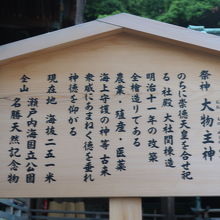 祭神 大物主神
のちに崇徳天皇を合せ祀
る 社殿 大社関棟造
明治十一年の改築
全檜造りである
農業・殖産・医薬
海上守護の神 等古来
衆感にあまねく徳を垂れ
神徳を仰がる
現在地 海抜二五一米
瀬戸内海国立公園
名勝天然記念物
全山